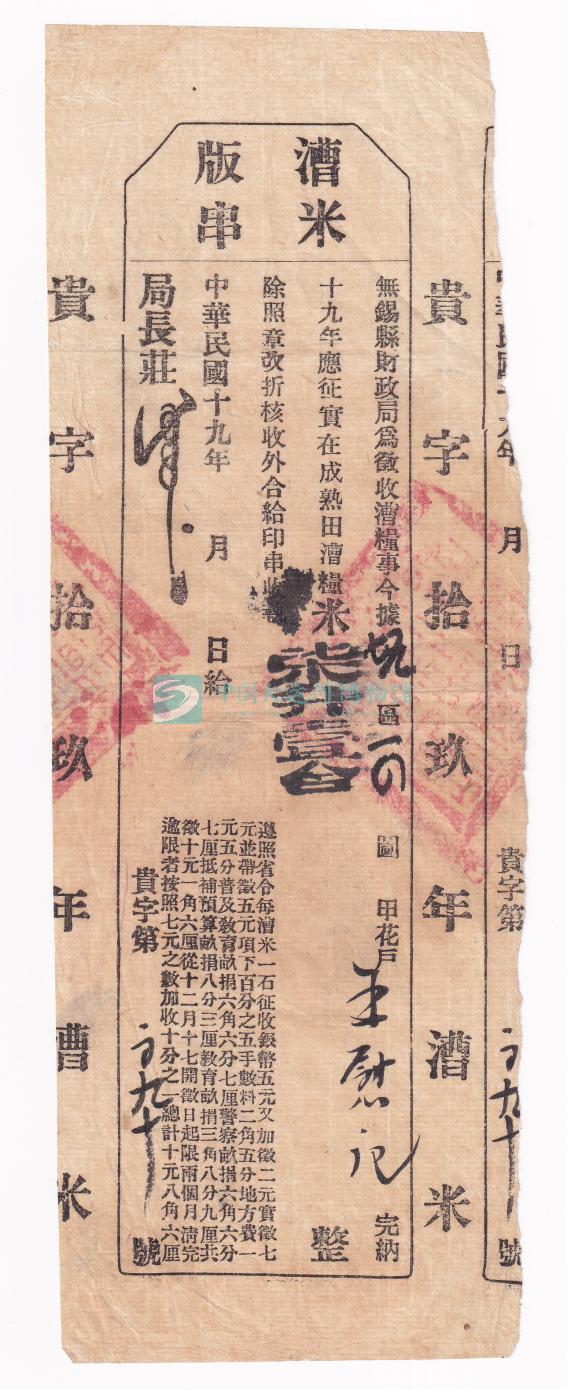 中華民國十九年 月 日
貴字第 號
貴字拾玖年漕米
漕米
版串
無錫縣財政局爲徵收漕糧事今據 區 圖 甲花戶 完納
十九年應征實在成熟田漕糧米柒升壹合整
除照章改折核收外合給印串收執
中華民國十九年 月 日給
局長莊
遵照省令每漕米一石征收銀幣五元又加徵二元實徵七
元並帶徵五元項下百分之五手數料二角五分地方費一
元五分普及敎育畝捐六角六分七厘警察畝捐六角六分
七厘抵補預算畝捐八分三厘敎育畝捐三角八分九厘共
徵十元一角六厘從十二月十七開徵日起限兩個月淸完
逾限者按照七元之數加收十分之一總計十元八角六厘
貴字第 號
貴字拾玖年漕米
中国大运河博物馆